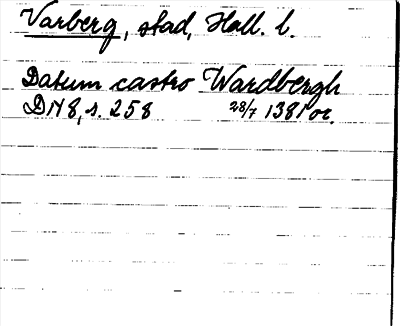 Varberg, stad, Hall. l.
Datum castro Wardbergh
DN 8, s. 258 28/7 1381 or.